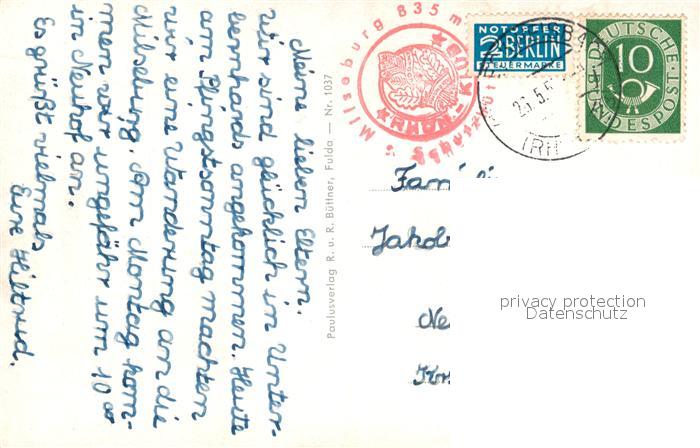 Meine lieben Eltern.
Wir sind glücklich in Unter-
bernhards angekommen. Heute
am Pfingstsonntag machten
wir eine Wanderung an die
Milseburg. Am Montag kom-
men wir ungefähr um 10 00
in Neuhof an.
Es grüßt vielmals
Eure Hiltrud.
Paulusverlag R. u. R. Büttner, Fulda. — Nr. 1037
Milseburg 835 m
RHÖN-K
NOTOPFER
2 BERLIN
STEUERMARKE
DEUTSCHE
BUNDESPOST
10
(RH
Famili
Jakob
Ne
Kr
privacy protection
Datenschutz